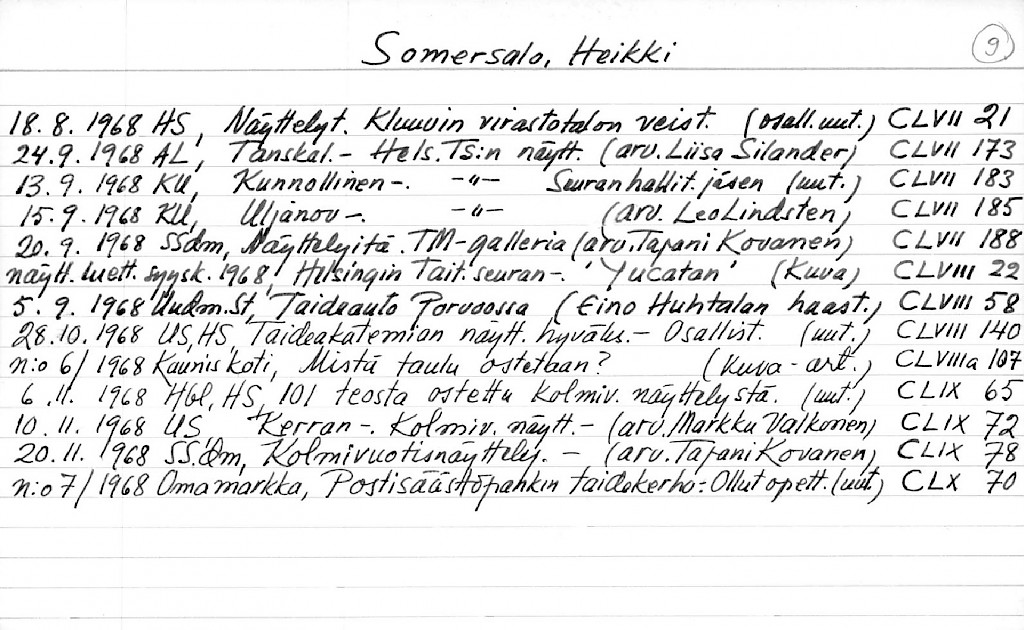 Somersalo, Heikki 9
18.8.1968 HS, Näyttelyt. Kluuvin virastotalon veist. (osall.uut.) CLVII 21
24.9.1968 AL, Tanskal.- Hels.TS:n näytt. (arv. Liisa Silander) CLVII 173
13.9.1968 KU, Kunnollinen-. -"- Seuran hallit. jäsen (uut.) CLVII 183
15.9.1968 KU, Uljanov-. -"- (arv. Leo Lindsten) CLVII 185
20.9.1968 SSdm, Näyttelyitä. TM-galleria (arv. Tapani Kovanen) CLVII 188
näytt.luett. syysk. 1968, Helsingin Tait. seuran-. 'Yucatan' (Kuva) CLVIII 22
5.9.1968 Uudm.St, Taideauto Porvoossa (Eino Huhtalan haast.) CLVIII 58
28.10.1968 US, HS, Taideakatemian näytt. hyväks.- Osallist. (uut.) CLVIII 140
n:o 6/1968 Kaunis koti, Mistä taulu ostetaan? (kuva-art.) CLVIIIa 107
6.11.1968 Hbl, HS, 101 teosta ostettu kolmiv. näyttelystä. (uut.) CLIX 65
10.11.1968 US, Kerran-. Kolmiv. näytt.- (arv. Markku Valkonen) CLIX 72
20.11.1968 SS.dm, Kolmivuotisnäyttely. - (arv. Tapani Kovanen) CLIX 78
n:o 7/1968 Omamarkka, Postisäästöpankin taidekerho: Ollut opett. (uut.) CLX 70